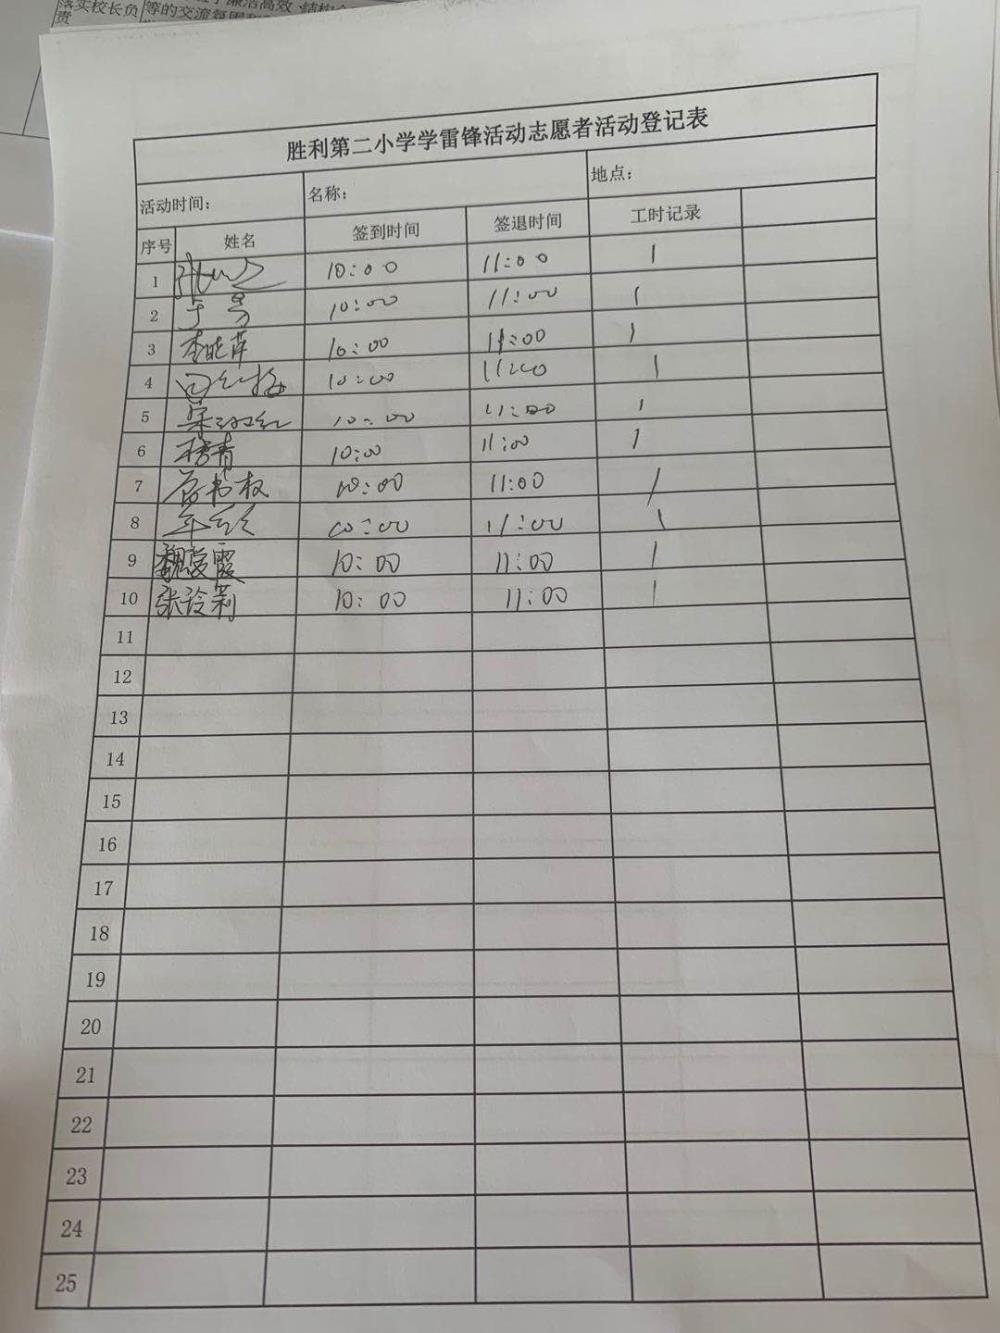 落实校长负
责
胜利第二小学学雷锋活动志愿者活动登记表
活动时间： 名称： 地点：
序号 姓名 签到时间 签退时间 工时记录
1 10:00 11:00 1
2 10:00 11:00 1
3 李晓萍 10:00 11:00 1
4 10:00 11:00 1
5 10:00 11:00 1
6 杨青 10:00 11:00 1
7 10:00 11:00 1
8 10:00 11:00 1
9 魏爱霞 10:00 11:00 1
10 张玲莉 10:00 11:00 1
11
12
13
14
15
16
17
18
19
20
21
22
23
24
25